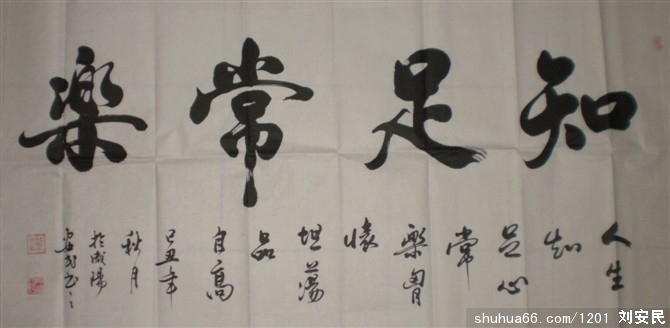 知足常樂
人生
知
足心
常
樂胷
懷
坦蕩
品
自高
己丑年
秋月
於咸陽
安民书
shuhua66.com/1201 刘安民